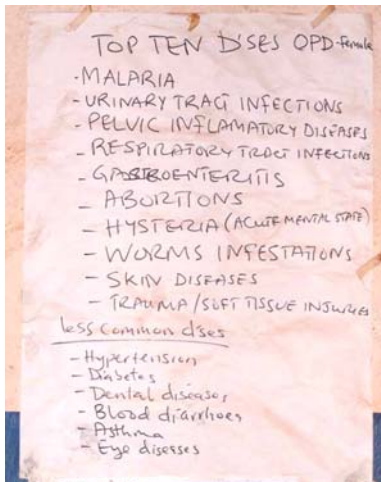 TOP TEN D'SES OPD-female
- MALARIA
- URINARY TRACT INFECTIONS
- PELVIC INFLAMATORY DISEASES
- RESPIRATORY TRACT INFECTIONS
- GASTROENTERITIS
- ABORTIONS
- HYSTERIA (ACUTE MENTAL STATE)
- WORMS INFESTATIONS
- SKIN DISEASES
- TRAUMA/SOFT TISSUE INJURIES
less common d'ses
- Hypertension
- Diabetes
- Dental diseases
- Blood diarrhoea
- Asthma
- Eye diseases